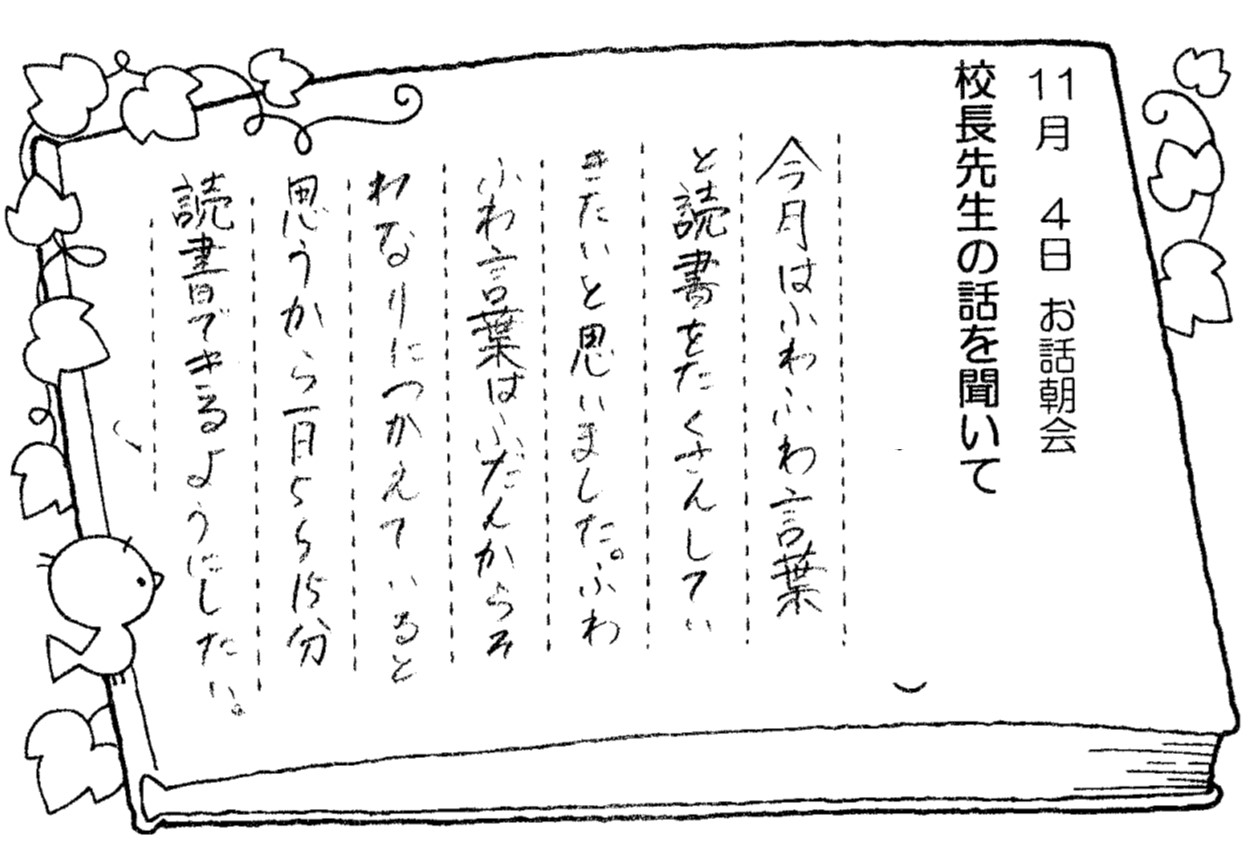 11月　4日 お話朝会
校長先生の話を聞いて
今月はふわふわ言葉
と読書をたくさんしてい
きたいと思いました。ふわ
ふわ言葉はふだんからそ
れなりにつかえていると
思うから一日5〜15分
読書できるようにしたい。